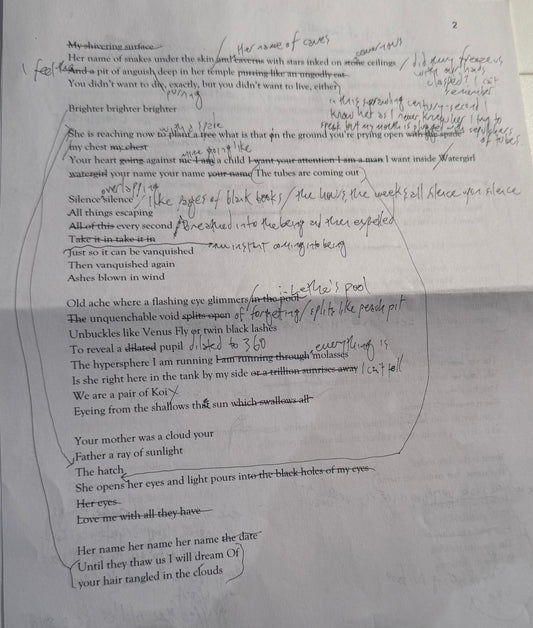 2
My shivering surface
Her name of caves
Her name of snakes under the skin and caverns with stars inked on stone ceilings / did they freeze us
cavernous
with our hands
I feel the
And a pit of anguish deep in her temple purring like an ungodly cat
clasped? I can't
remember
You didn't want to die, exactly, but you didn't want to live, either
purring
in this spiraling century-second I
Brighter brighter brighter
know her as I never knew her I try to
speak but my mouth is plugged was sepulchers
of tubes.
with a spade
She is reaching now to plant a tree what is that in the ground you're prying open with the spade
my chest my chest
mine going like
Your heart going against me I am a child I want your attention I am a man I want inside Watergirl
watergirl your name your name your name The tubes are coming out
overlapping
Silence silence / like pages of black books / the hours, the weeks all silence upon silence
All things escaping
All of this every second / Breathed into the being and then expelled
Take it in take it in
an instant coming into being
Just so it can be vanquished
Then vanquished again
Ashes blown in wind
Old ache where a flashing eye glimmers / in the pool in Lethe's pool
The unquenchable void splits open of forgetting / splits like peach pit
Unbuckles like Venus Fly or twin black lashes
To reveal a dilated pupil dilated to 360
everything is
The hypersphere I am running I am running through molasses
Is she right here in the tank by my side or a trillion sunrises away I can't tell
We are a pair of Koi
Eyeing from the shallows that sun which swallows all
Your mother was a cloud your
Father a ray of sunlight
The hatch
She opens her eyes and light pours into the black holes of my eyes
Her eyes
Love me with all they have
Her name her name her name the date
Until they thaw us I will dream Of
your hair tangled in the clouds